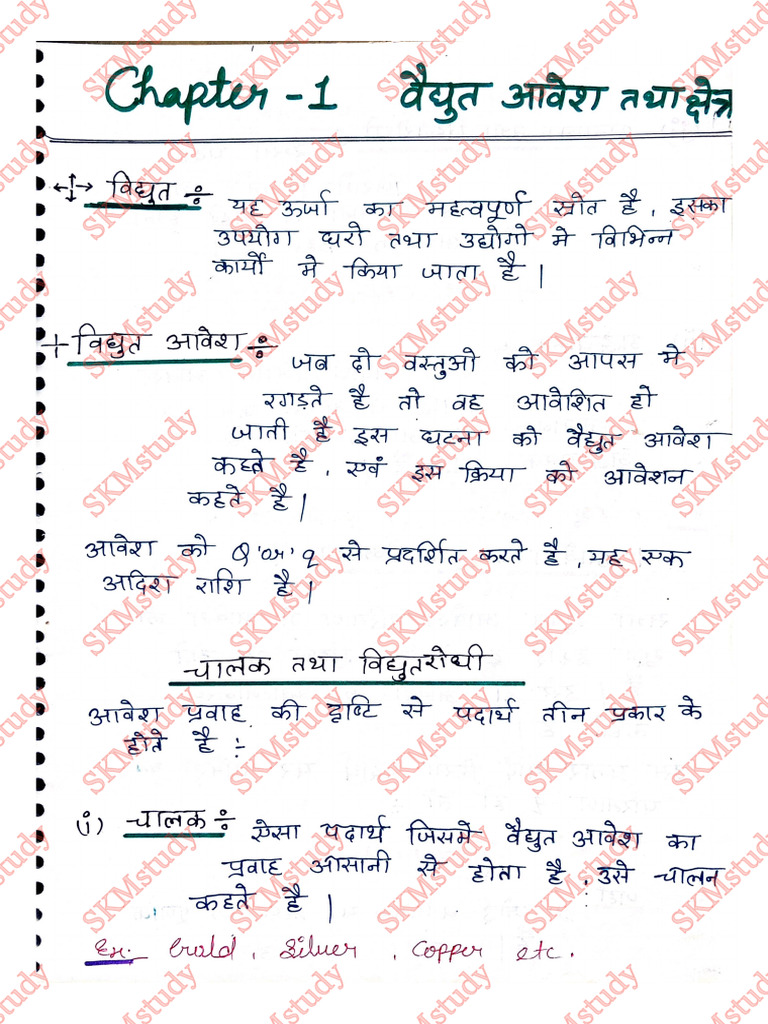 Chapter -1 वैद्युत आवेश तथा क्षेत्र
विद्युत ÷ यह ऊर्जा का महत्वपूर्ण स्रोत है, इसका
उपयोग घरो तथा उद्योगो मे विभिन्न
कार्यो मे किया जाता है |
विद्युत आवेश ÷ जब दो वस्तुओ को आपस मे
रगड़ते है तो वह आवेशित हो
जाती है इस घटना को वैद्युत आवेश
कहते है, एवं इस क्रिया को आवेशन
कहते है |
आवेश को Q 'or' q से प्रदर्शित करते है, यह एक
अदिश राशि है |
चालक तथा विद्युतरोधी
आवेश प्रवाह की दृष्टि से पदार्थ तीन प्रकार के
होते है :-
(i) चालक ÷ ऐसा पदार्थ जिसमे वैद्युत आवेश का
प्रवाह आसानी से होता है, उसे चालन
कहते है |
Ex. Gold, Silver, Copper etc.
SKMstudy